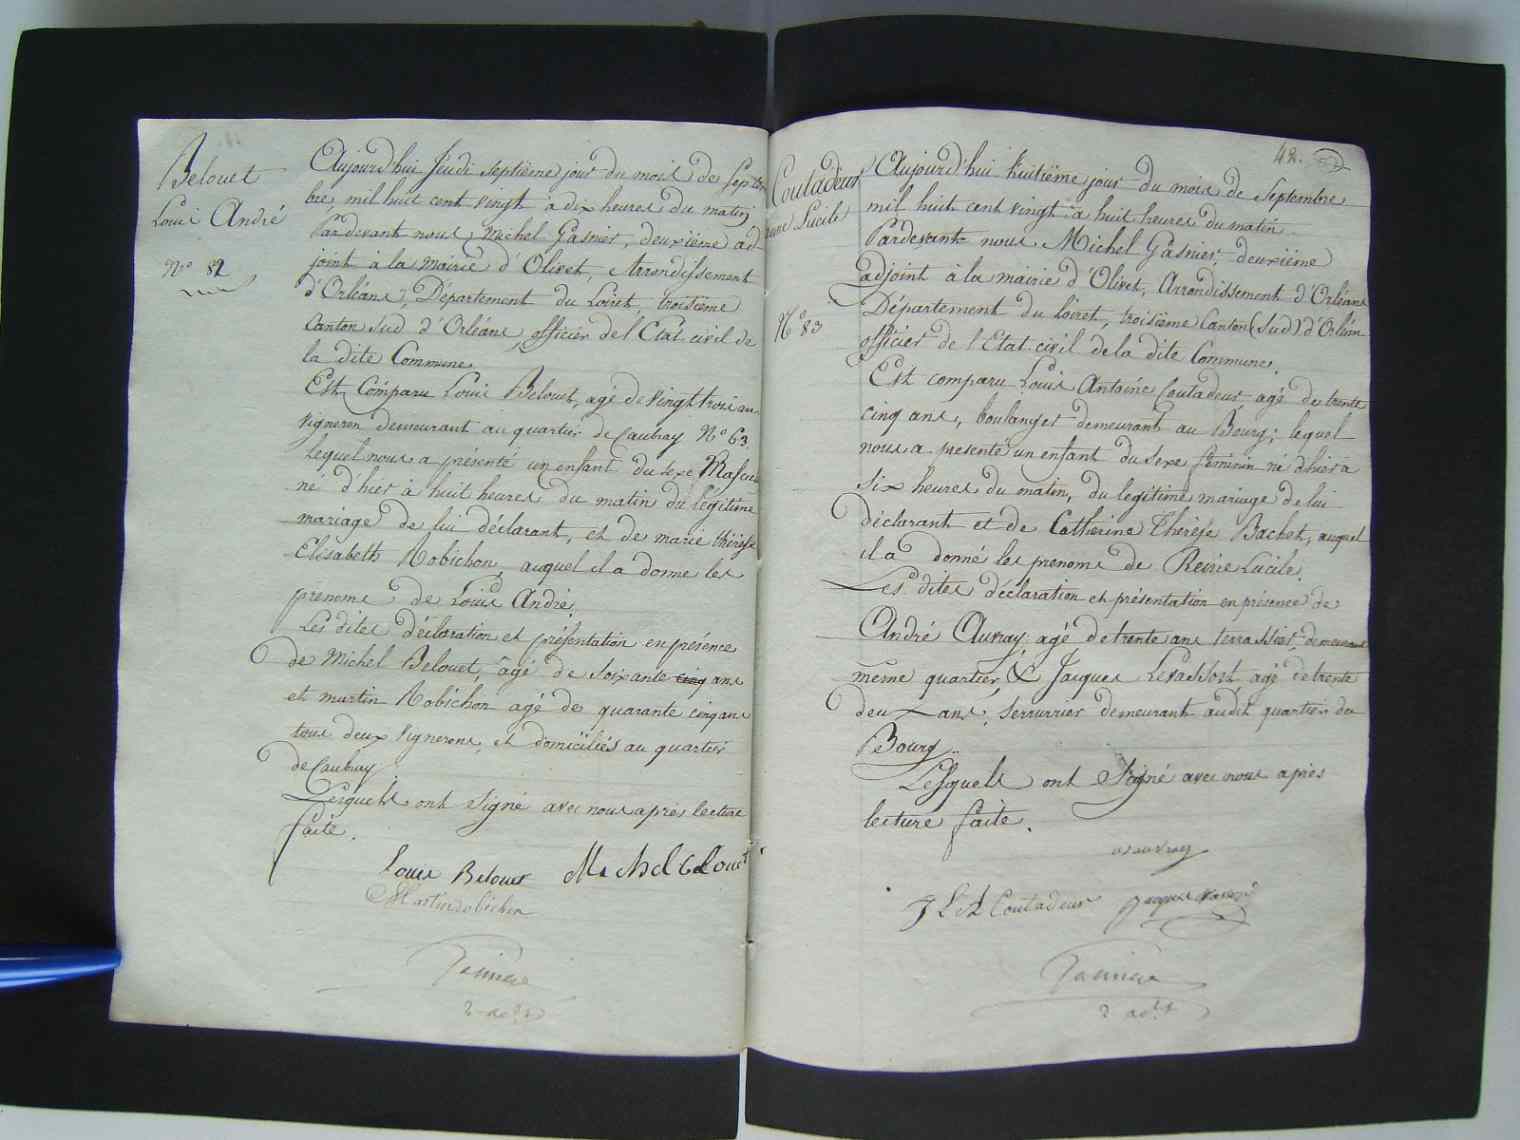 Belouet
Louis André
N.o 82
Aujourd'hui Jeudi septième jour du mois de Septem
bre mil huit cent vingt à dix heures du matin
Pardevant nous Michel Gasnier, deuxième ad
joint à la Mairie d'Olivet, Arrondissement
d'Orléans, Département du Loiret, troisième
Canton Sud d'Orléans, officier de l'Etat civil de
la dite Commune
Est Comparu Louis Belouet, agé de vingt trois ans
vigneron demeurant au quartier de Caubray N.o 63.
lequel nous a présenté un enfant du sexe Mascu
né d'hier à huit heures du matin du légitime
mariage de lui déclarant, et de marie thérèse
Elisabeth Robichon, auquel il a donné les
prénoms de Louis André.
Les dites déclaration et présentation en présence
de Michel Belouet, agé de soixante cinq ans
et martin Robichon agé de quarante cinq ans
tous deux vignerons, et domiciliés au quartier
de Caubray
Lesquels ont signé avec nous après lecture
faite.
Louis Belouet Michel Belouet
Martin Robichon
2.e adj.t
48.
Coutadeur
Reine Lucile
N.o 83
Aujourd'hui huitième jour du mois de Septembre
mil huit cent vingt à huit heures du matin
Pardevant nous Michel Gasnier, deuxième
adjoint à la mairie d'Olivet, Arrondissement d'Orléans
Département du Loiret, troisième Canton (Sud) d'Orléans
officier de l'Etat civil de la dite Commune.
Est comparu Louis Antoine Coutadeur agé de trente
cinq ans, boulanger demeurant au Bourg; lequel
nous a presenté un enfant du sexe féminin né d'hier à
six heures du matin, du legitime mariage de lui
déclarant et de Catherine Thérèse Bachet, auquel
il a donné les prenoms de Reine Lucile.
Les dites déclaration et présentation en présence de
André Auvray, agé de trente ans terrassier, demeurant
même quartier, & Jacques Levassort agé de trente
deux ans, serrurier demeurant audit quartier du
Bourg.
Lesquels ont Signé avec nous après
lecture faite.
auvray
J L A Coutadeur Jacques
2 adj.t